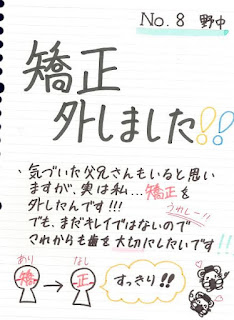 No.8 野中
矯正
外しました!!
・気づいた父兄さんもいると思い
ますが、実は私…矯正を
外したんです!!!
うれしー!!
でも、まだキレイではないので
これからも歯を大切にしたいです!!
あり
なし
矯 → 正
すっきり!!